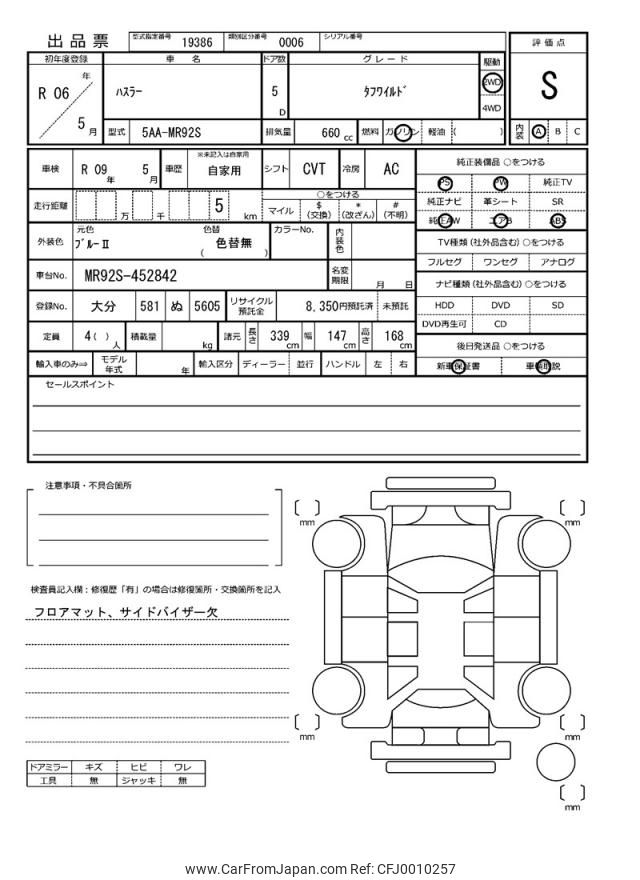 出品票 型式指定番号 19386 類別区分番号 0006 シリアル番号
初年度登録 車名 ドア数 グレード 駆動 評価点
R 06 年 5 月 ハスラー 5 D タフワイルド 2WD 4WD S
型式 5AA-MR92S 排気量 660 cc 燃料 ガソリン 軽油 ( ) 内装 A B C
車検 R 09 年 5 月 車歴 ※未記入は自家用 自家用 シフト CVT 冷房 AC
走行距離 万 千 5 km ○をつける
マイル $ (交換) * (改ざん) # (不明)
外装色 元色 ブルーⅡ 色替 色替無 ( ) カラーNo. 内装色
車台No. MR92S-452842 名変期限 月 日
登録No. 大分 581 ぬ 5605 リサイクル預託金 8,350円預託済 未預託
定員 4 ( ) 人 積載量 kg 諸元 長さ 339 cm 幅 147 cm 高さ 168 cm
輸入車のみ⇒ モデル年式 年 輸入区分 ディーラー 並行 ハンドル 左 右
純正装備品 ○をつける
PS PW 純正TV
純正ナビ 革シート SR
純正AW エアB ABS
TV種類 (社外品含む) ○をつける
フルセグ ワンセグ アナログ
ナビ種類 (社外品含む) ○をつける
HDD DVD SD
DVD再生可 CD
後日発送品 ○をつける
新車保証書 車輌取説
セールスポイント
注意事項・不具合箇所
検査員記入欄：修復歴「有」の場合は修復箇所・交換箇所を記入
フロアマット、サイドバイザー欠
ドアミラー キズ ヒビ ワレ
工具 無 ジャッキ 無
[ ] mm
[ ] mm
[ ] mm
[ ] mm
[ ] mm
www.CarFromJapan.com Ref: CFJ0010257